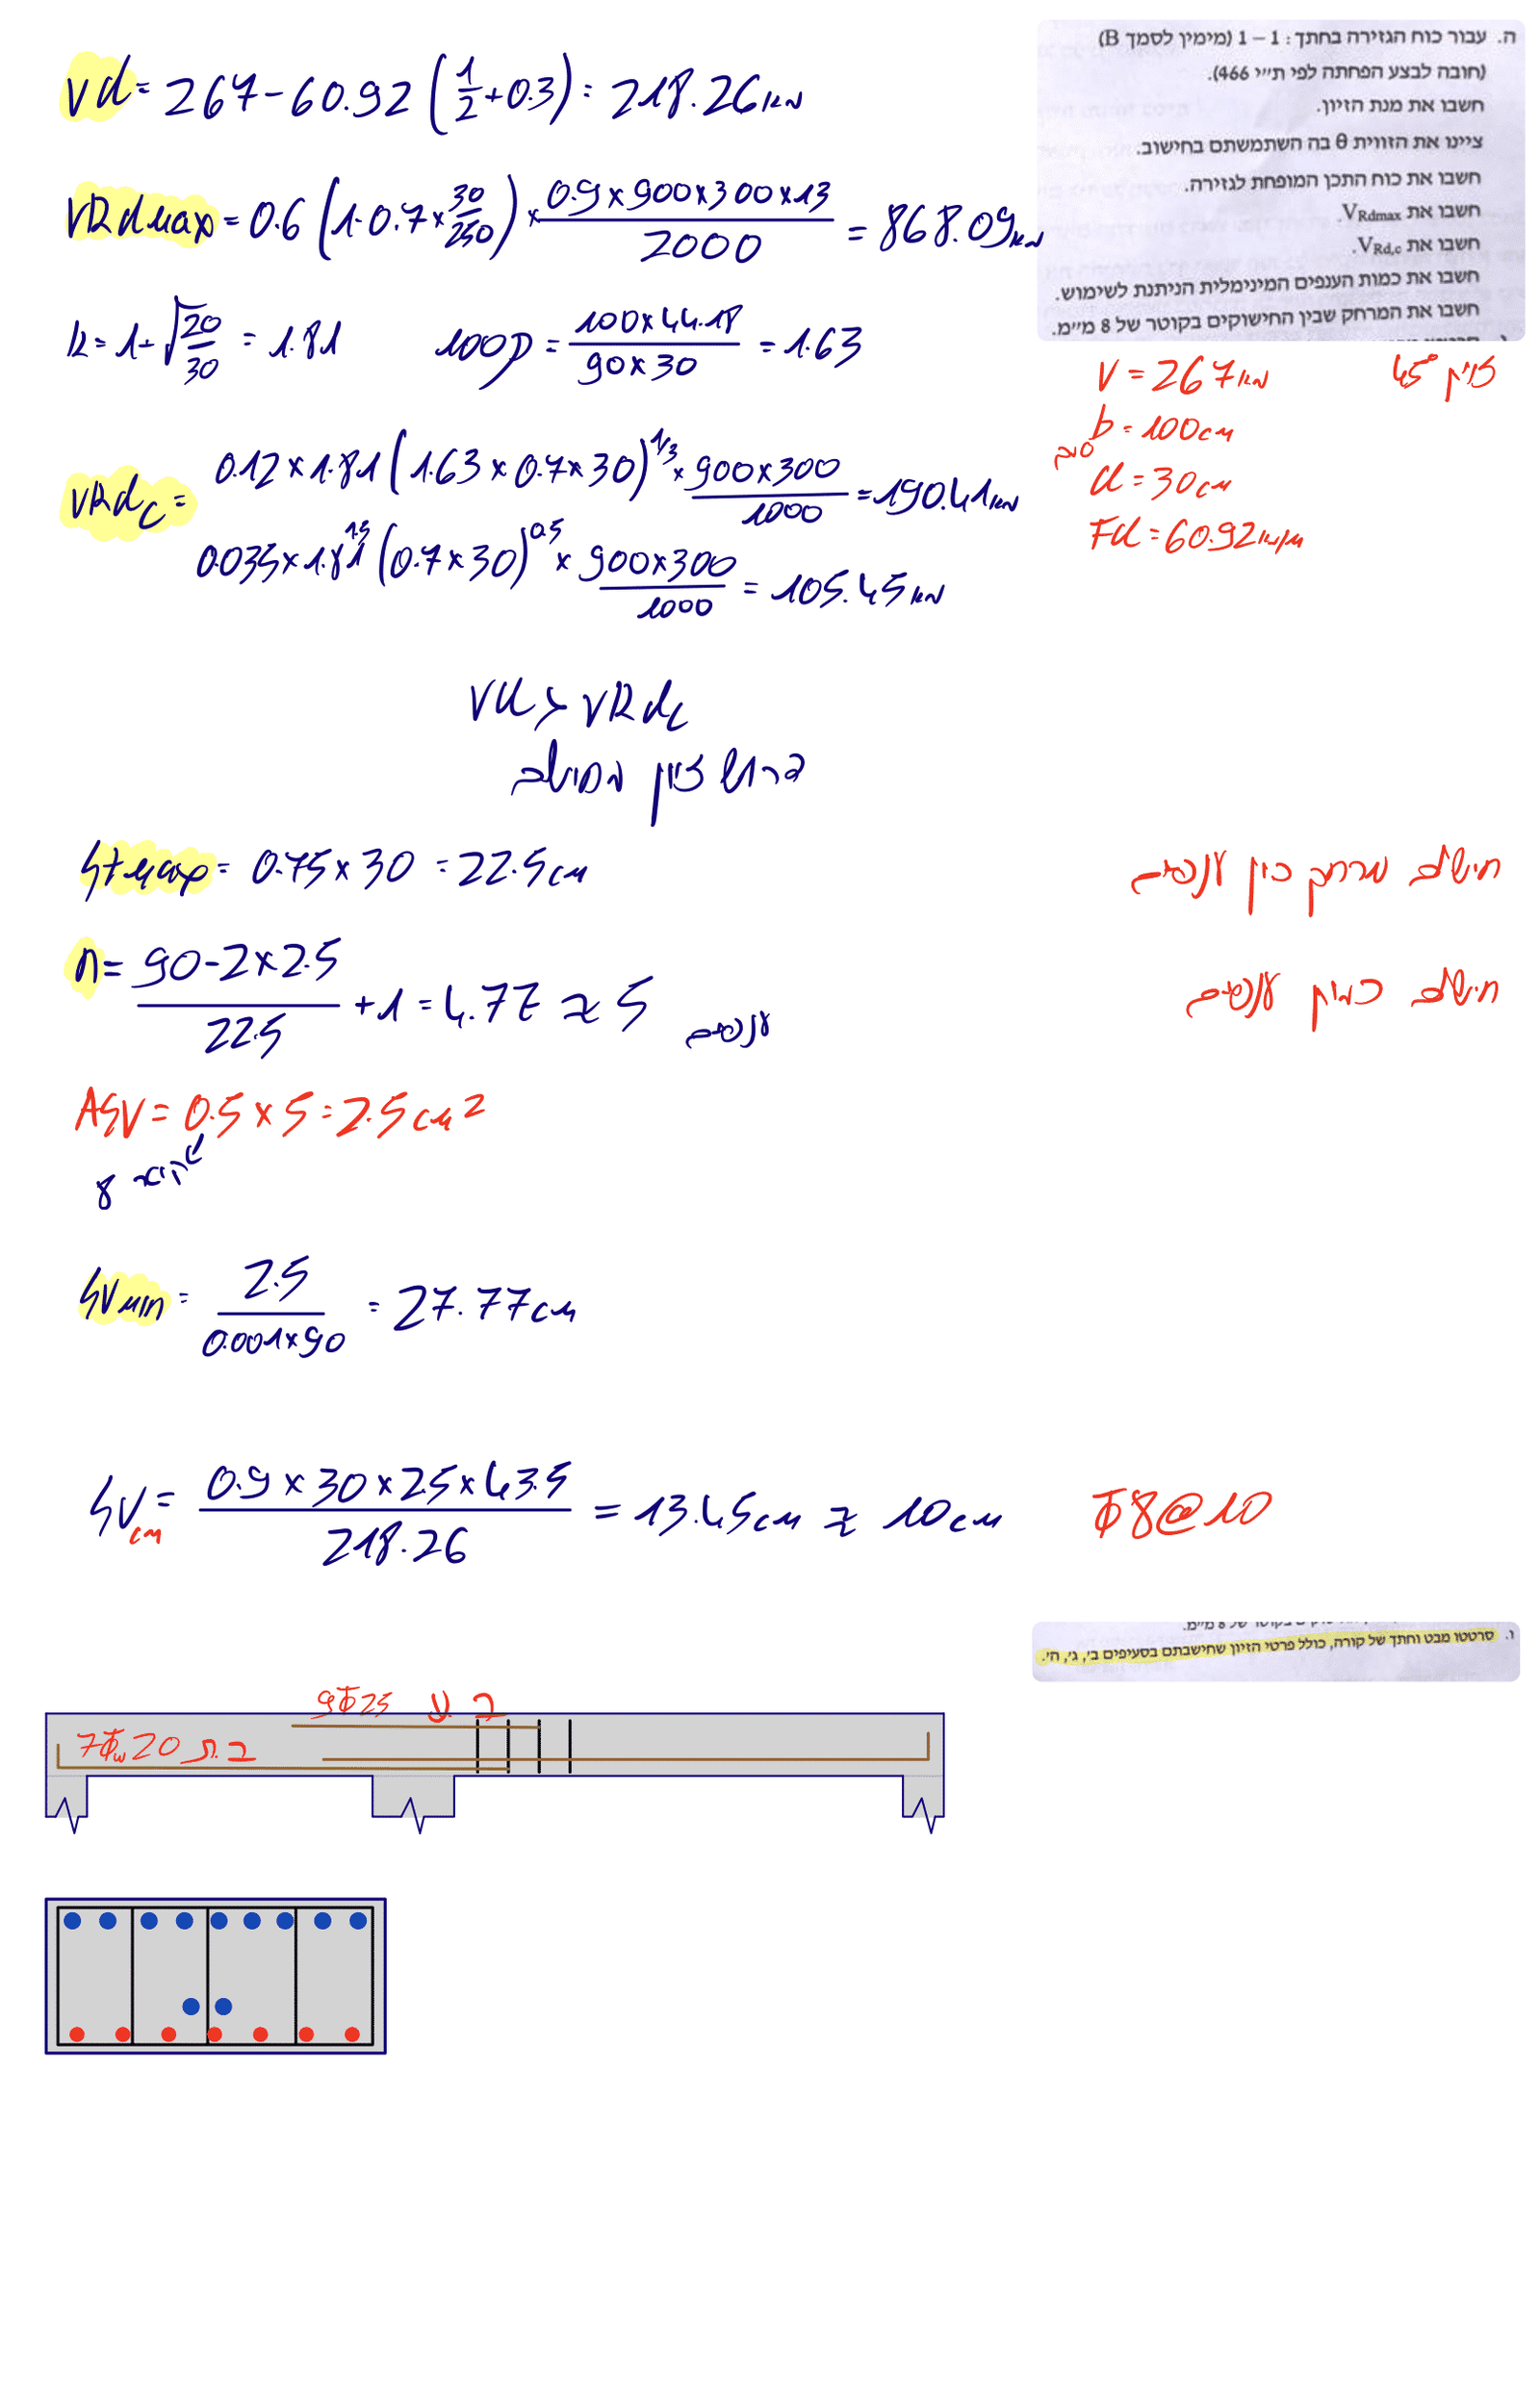 ה. עבור כוח הגזירה בחתך: 1 – 1 (מימין לסמך B)
(חובה לבצע הפחתה לפי ת״י 466).
חשבו את מנת הזיון.
ציינו את הזווית θ בה השתמשתם בחישוב.
חשבו את כוח התכן המופחת לגזירה.
חשבו את VRdmax.
חשבו את VRd,c.
חשבו את כמות הענפים המינימלית הניתנת לשימוש.
חשבו את המרחק שבין החישוקים בקוטר של 8 מ״מ.
Vd = 267-60.92 (1/2+0.3) = 218.26 קנ
VRdmax = 0.6 (1-0.7×30/250) × 0.9×900×300×13/2000 = 868.09 קנ
k = 1+√20/30 = 1.81 100ρ = 100×44.18/90×30 = 1.63
V = 267 קנ זוית 45°
b = 100cm
d = 30cm
Fd = 60.92 קנ/מ
VRdc = 0.12×1.81(1.63×0.7×30)^1/3 × 900×300/1000 = 190.41 קנ
0.035×1.81^1.5 (0.7×30)^0.5 × 900×300/1000 = 105.45 קנ
Vd > VRdc
דרוש זיון מחושב
Stmax = 0.75×30 = 22.5cm חישוב מרחק בין ענפים
n = 90-2×2.5/22.5 +1 = 4.77 ≈ 5 ענפים חישוב כמות ענפים
ASV = 0.5×5 = 2.5cm²
8
SVmin = 2.5/0.001×90 = 27.77cm
SVcm = 0.9×30×2.5×43.5/218.26 = 13.45cm ≈ 10cm Φ8@10
ו. סרטטו מבט וחתך של קורה, כולל פרטי הזיון שחישבתם בסעיפים ב׳, ג׳, ה׳.
9Φ25 ב.ע
7Φw20 ב.ת